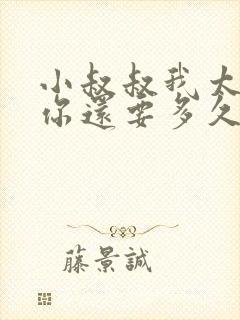 小叔叔我大
你還要多久
藤景誠